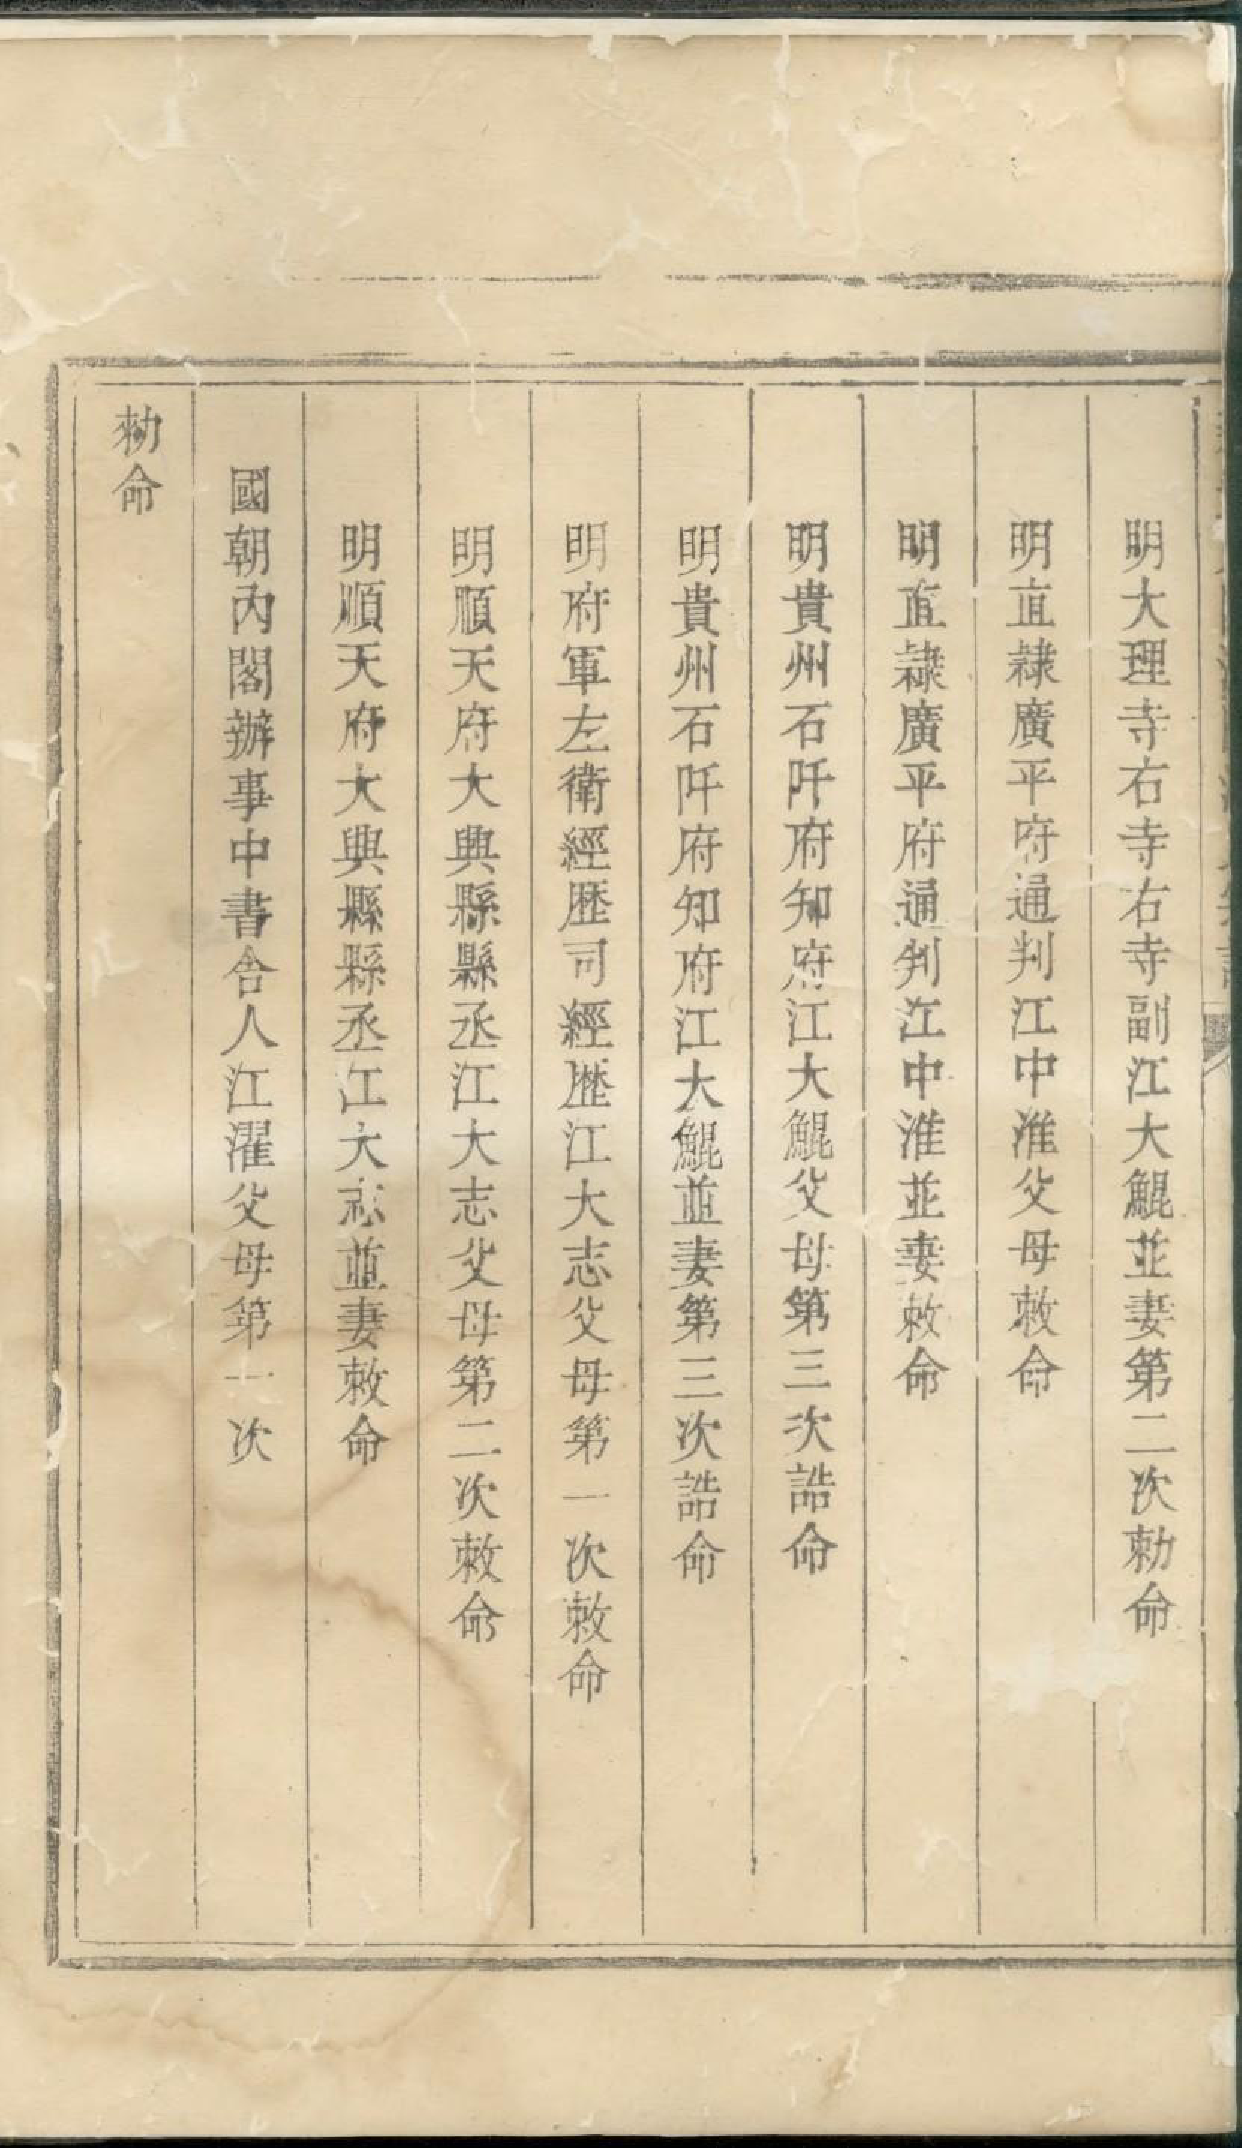 明大理寺右寺右寺副江大鯤並妻第二次勅命
明直隷廣平府通判江中淮父母敕命
明直隷廣平府通判江中淮並妻敕命
明貴州石阡府知府江大鯤父母第三次誥命
明貴州石阡府知府江大鯤並妻第三次誥命
明府軍左衛經歴司經歴江大志父母第一次敕命
明順天府大興縣縣丞江大志父母第二次敕命
明順天府大興縣縣丞江大志並妻敕命
國朝內閣辦事中書舍人江濯父母第一次
勅命